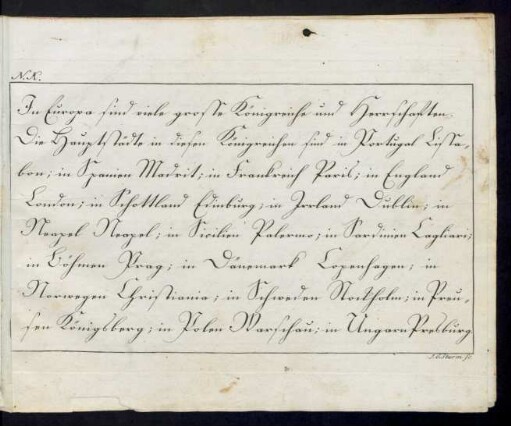 N.K.
In Europa sind viele grosse Königreiche und Herrschaften
Die Hauptstädte in diesen Königreichen sind in Portugal Lissa-
bon; in Spanien Madrit; in Frankreich Paris; in England
London; in Schottland Edinburg; in Irrland Dublin; in
Neapel Neapel; in Sicilien Palermo; in Sardinien Cagliari;
in Böhmen Prag; in Dänemark Copenhagen; in
Norwegen Christiania; in Schweden Stockholm; in Preu-
sen Königsberg; in Polen Warschau; in Ungarn Presburg